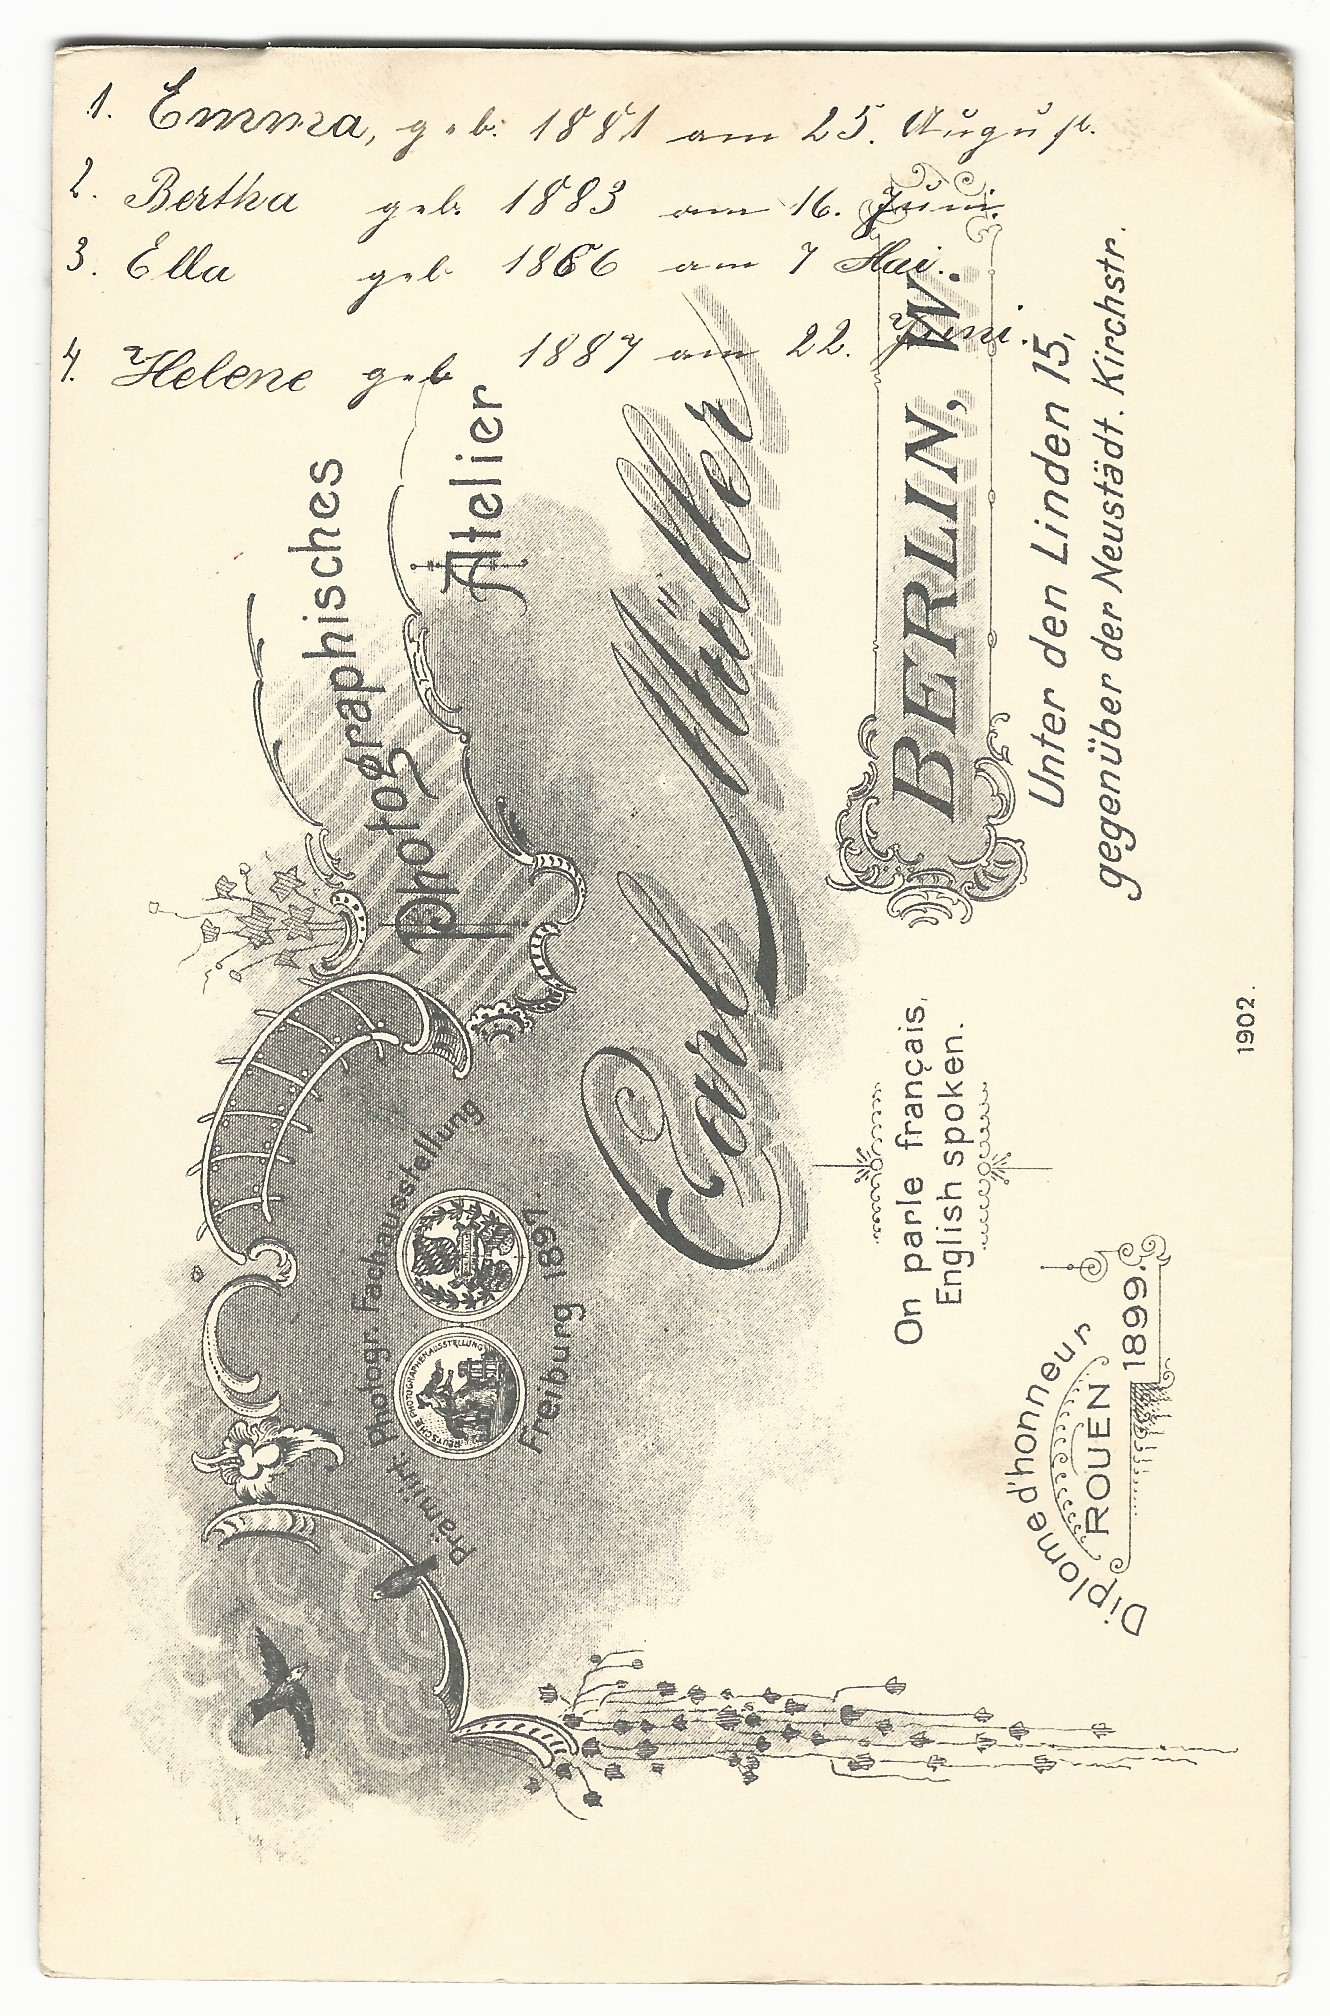 1. Emma, geb. 1881 am 25. August.
2. Bertha geb. 1883 am 16. Juni.
3. Ella geb 1886 am 7 Mai.
4. Helene geb 1887 am 22. Juni.
Photographisches
Atelier
Prämiirt Photogr. Fachausstellung
Freiburg 1897.
Carl Müller
BERLIN, W.
Unter den Linden 15,
gegenüber der Neustädt. Kirchstr.
On parle français,
English spoken.
Diplome d'honneur
ROUEN 1899.
1902.